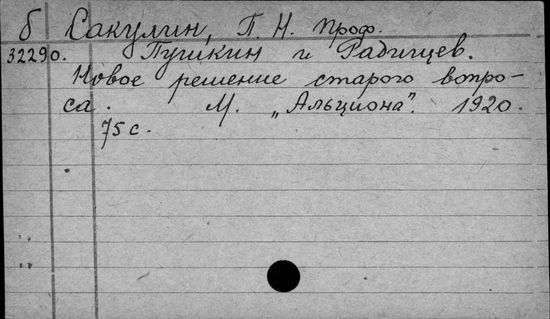 б Сакулин, П. Н. проф.
32290. Пушкин и Радищев.
Новое решение старого вопро-
са. М. „Альциона". 1920.
75 с.